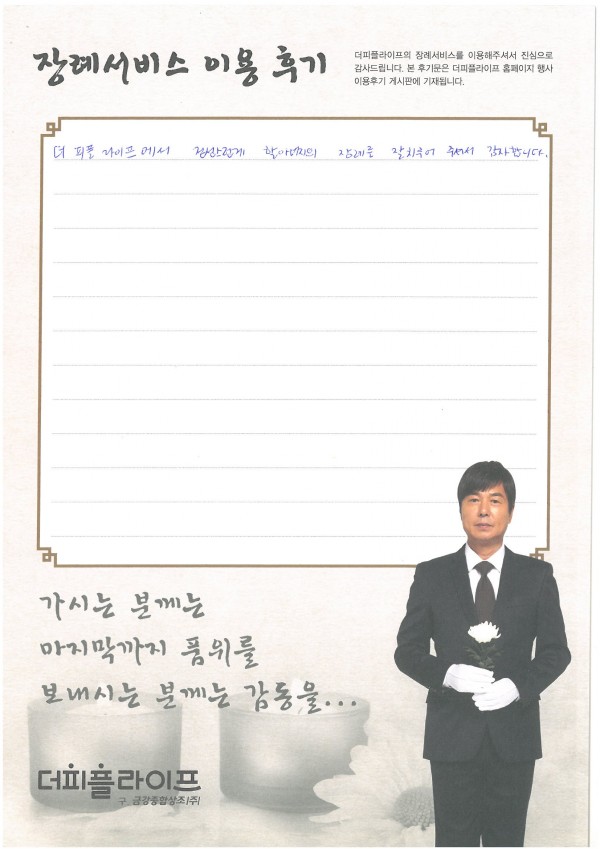 장례서비스 이용 후기
더피플라이프의 장례서비스를 이용해주셔서 진심으로
감사드립니다. 본 후기문은 더피플라이프 홈페이지 행사
이용후기 게시판에 기재됩니다.
더 피플 라이프에서 정성스럽게 할아버지의 장례를 잘치루어 주셔서 감사합니다.
가시는 분께는
마지막까지 품위를
보내시는 분께는 감동을...
더피플라이프
구. 금강종합상조(주)